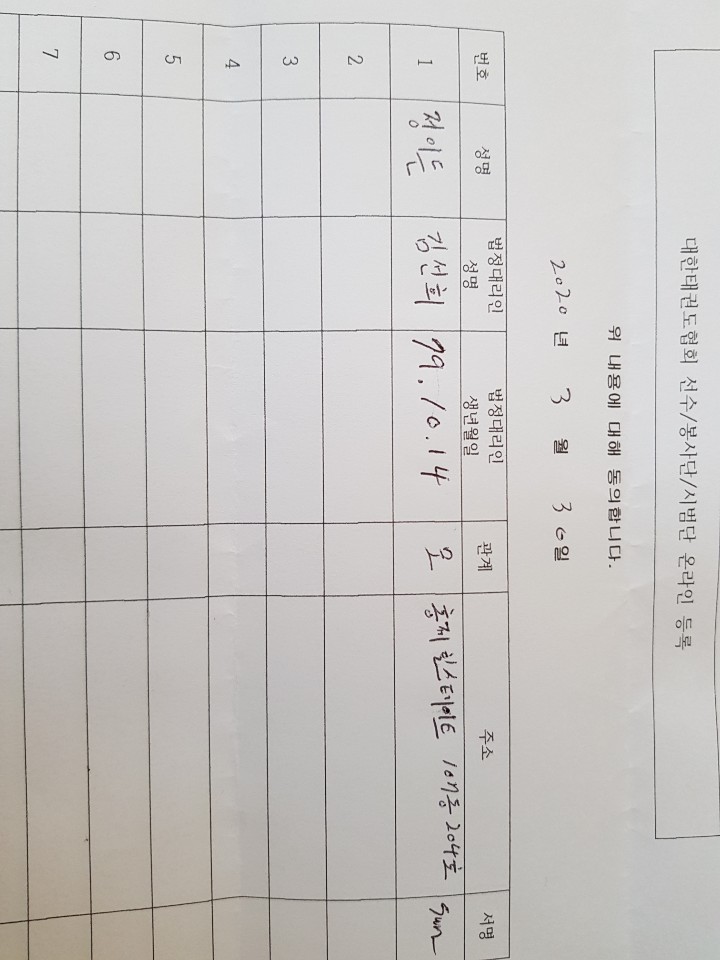 대한태권도협회 선수/봉사단/시범단 온라인 등록
위 내용에 대해 동의합니다.
2020 년 3 월 30일
번호 성명 법정대리인 성명 법정대리인 생년월일 관계 주소 서명
1 정이든 김선희 79.10.14 모 홍제힐스테이트 107동 204호 Sun
2
3
4
5
6
7